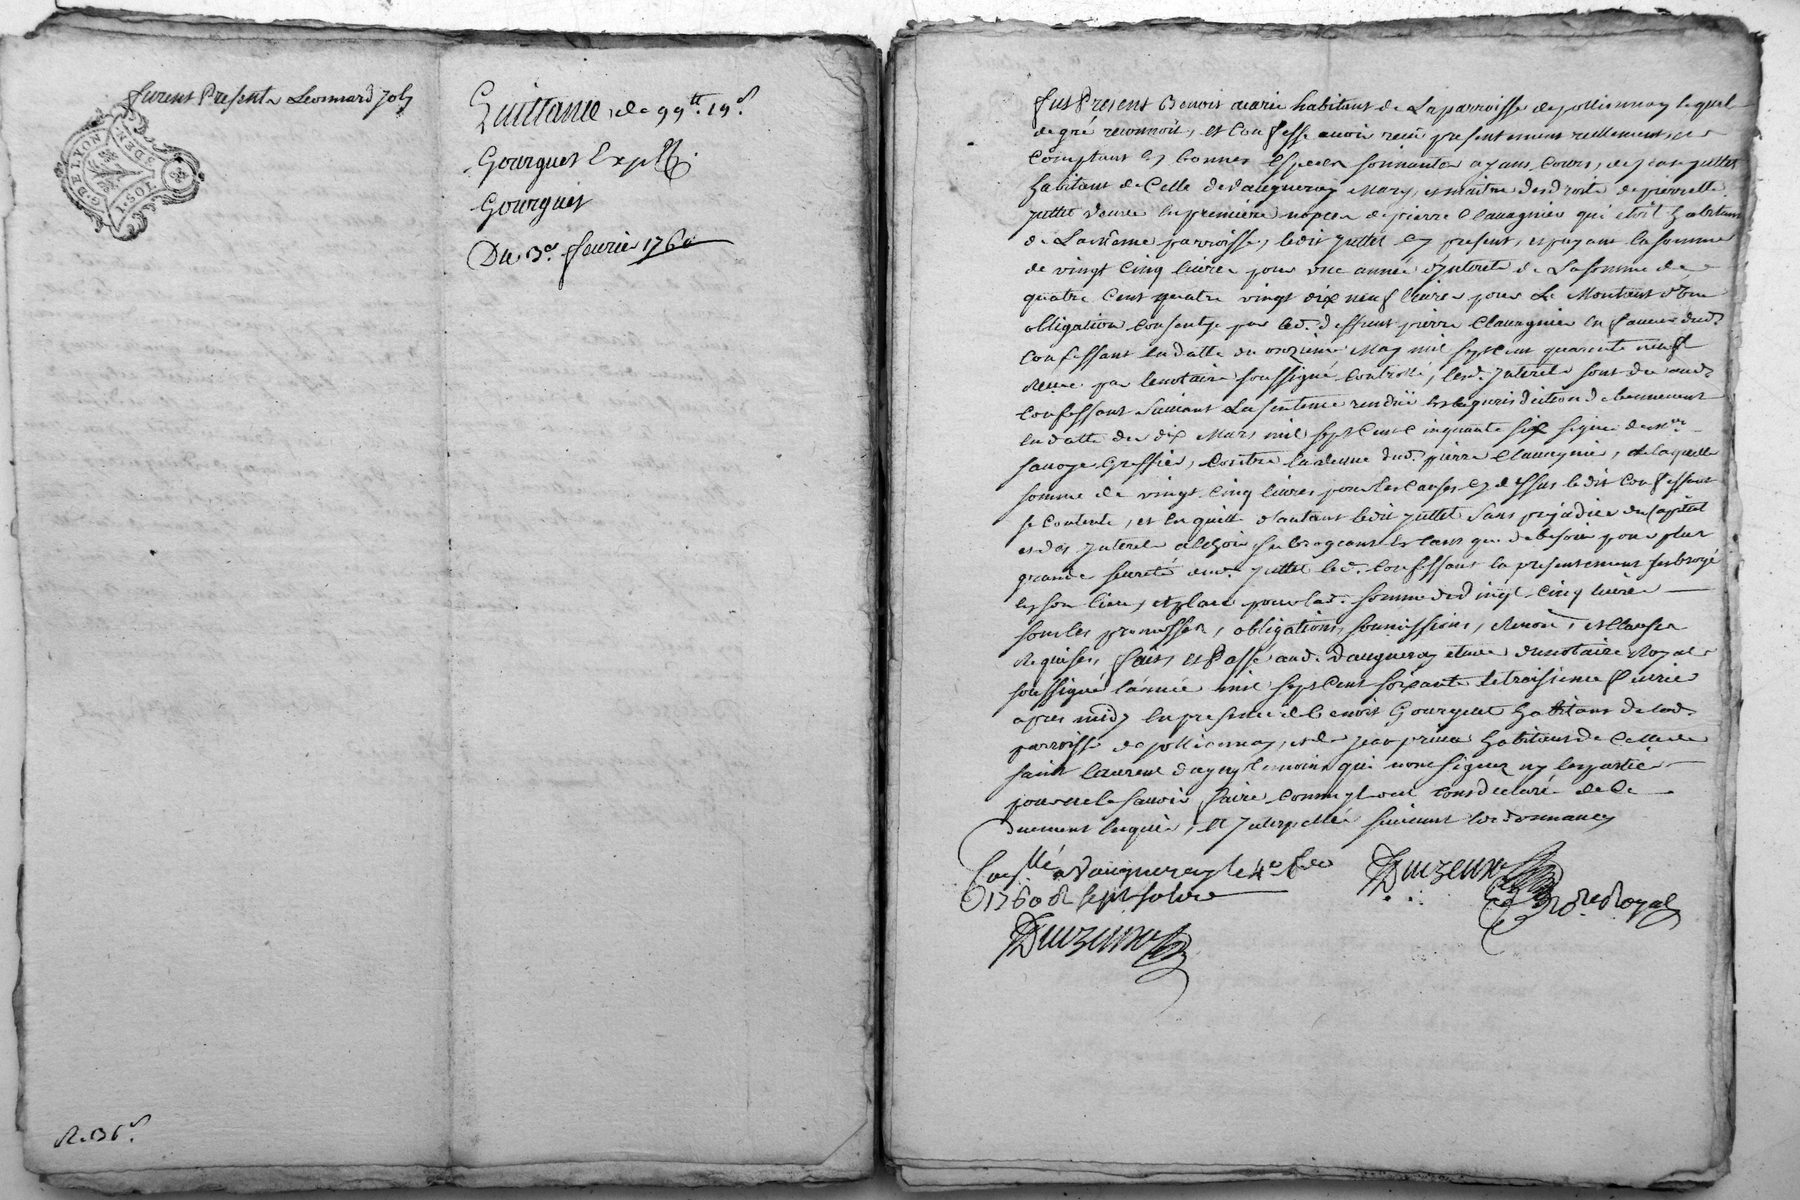 furent Presents Leonnard Joly
G. DE LYON
Quittance, de 99tt. 19s.
Gourguet Expl
Gourguet
Du 3e. feurier 1760
R. 13 6s.
Fut Present Benoit marie habitant de La parroisse de pollionnay lequel
de gré reconnoit, et Confesse auoir reçu presentement reellement, et
Comptant En bonnes Especes sonnantes ayant Cours, de jean juttet
habitant de Celle de Vaugneray Mary, et maitre des droits de pierrette
juttet Veuue En premiere nopces de pierre Clauagnier qui etoit habitant
de La même parroisse, ledit juttet Cy present, et payant la somme
de vingt Cinq liures pour une année d'jnterets de La somme de
quatre Cent quatre vingt dix neuf liures pour Le Montant d'une
obligation Consentye par led. deffunt pierre Clauagnier En faueur dud.
Confessant En datte du onzieme May mil sept Cent quarante neuf
Reçue par le notaire soussigné Controllé, lesd. jnterets sont dus aud.
Confessant Suiuant La sentence rendüe En la jurisdiction de
En datte du dix Mars mil sept Cent Cinquante six signée de Mr.
sauoye Greffier, Contre la veuue dud. pierre Clauagnier, de laquelle
somme de vingt Cinq liures pour les Causes Cy dessus ledit Confessant
se Contente, et En quitte d'autant ledit juttet Sans prejudice du Capital
et des jnterets a Echoir, subrogeant En tant que de besoin pour plus
grande seureté dud. juttet led. Confessant la presentement subrogé
En son lieu, et place pour lad. somme de vingt Cinq liures
sous les promesses, obligations, soumissions, Renon, et Clauses
Requises, fait, et Passé aud. Vaugneray etude du notaire Royal
soussigné l'année mil sept Cent soixante le troisieme feurier
apres midy En presence de benoit Gourguet habitant de lad.
parroisse de pollionnay, et de jean habitant de Celle de
saint laurent d'agny temoins qui n'ont signez ny les parties
pour ne le sauoir faire Comme jls ont tous declaré de Ce
duement Enquis, et jnterpellés suiuant l'ordonnance
Conllé a Vaugneray le 4e. feu
1760 R sept sols
Duizeux
Nore. Royal
Duizeux